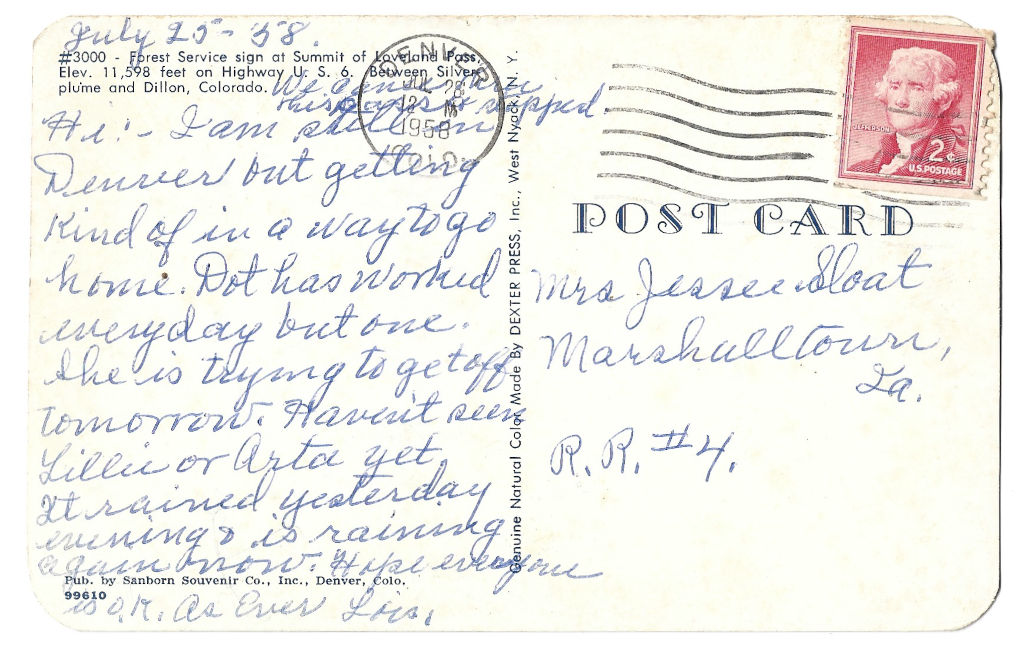 July 25-'58.
#3000 - Forest Service sign at Summit of Loveland Pass.
Elev. 11,598 feet on Highway U. S. 6. Between Silver-
plume and Dillon, Colorado.
We
this pass & stopped.
Hi:- I am still in
Denver but getting
Kind of in a way to go
home. Dot has worked
everyday but one.
She is trying to get off
tomorrow. Haven't seen
Lillie or Arta yet.
It rained yesterday
evening & is raining
again now. Hope everyone
is O.K. As Ever Lois.
Pub. by Sanborn Souvenir Co., Inc., Denver, Colo.
99610
Genuine Natural Color Made By DEXTER PRESS, Inc., West Nyack, N. Y.
DENVER
JUL 26
12 M
1958
COLO.
JEFFERSON
2¢
U.S. POSTAGE
POST CARD
Mrs Jessee Sloat
Marshalltown,
Ia.
R. R. #4.